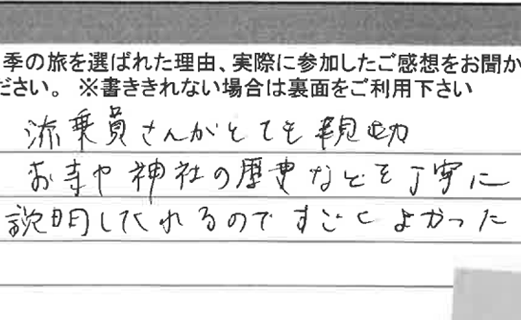 季の旅を選ばれた理由、実際に参加したご感想をお聞か
ださい。 ※書ききれない場合は裏面をご利用下さい
添乗員さんがとても親切
お寺や神社の歴史などを丁寧に
説明してくれるのですごくよかった